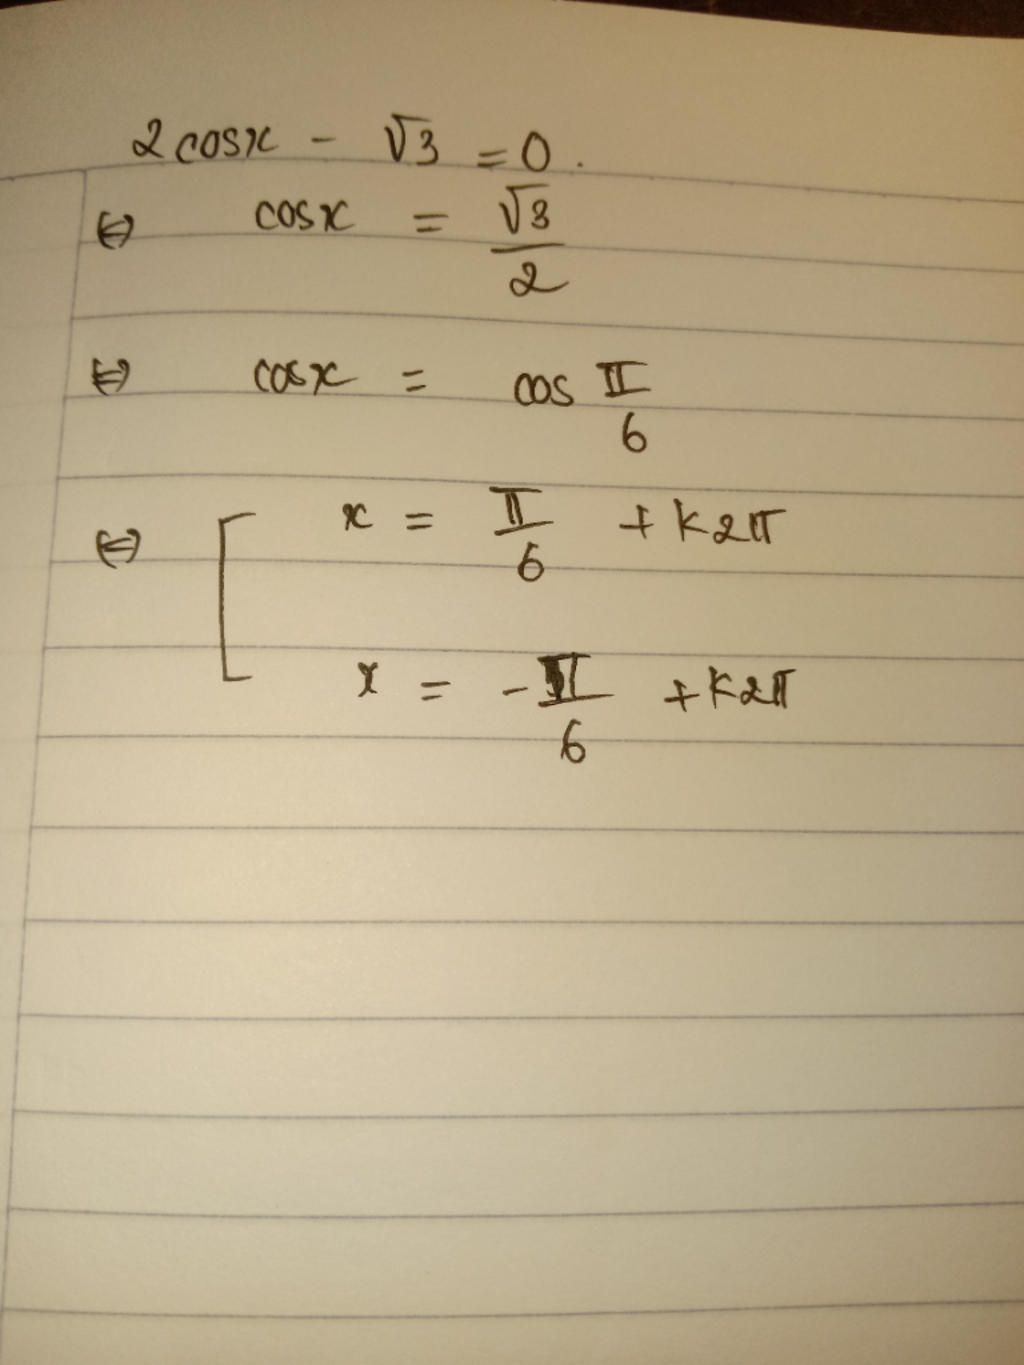 2cosx - √3 = 0.
⇔ cosx = √3/2
⇔ cosx = cos π/6
⇔ [ x = π/6 + k2π
x = -π/6 + k2π